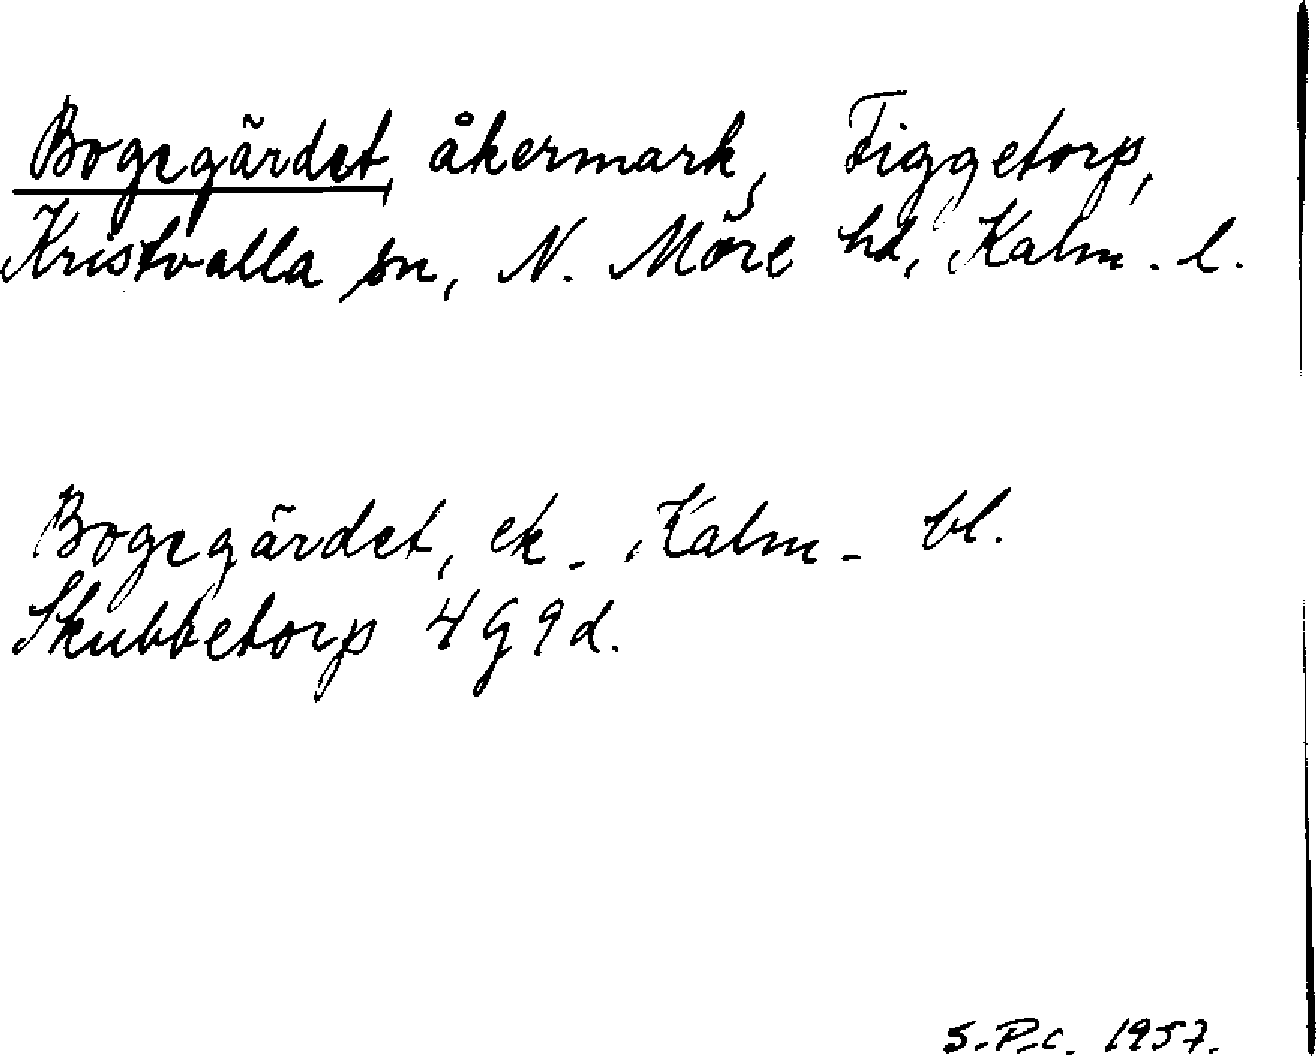 Bogegärdet, åkermark, Figgetorp,
Kristvalla sn, N. Möre hd, Kalm. l.
Bogegärdet, ek. Kalm. bl.
Skubbetorp 4 G 9 d.
S.P.C. 1957.